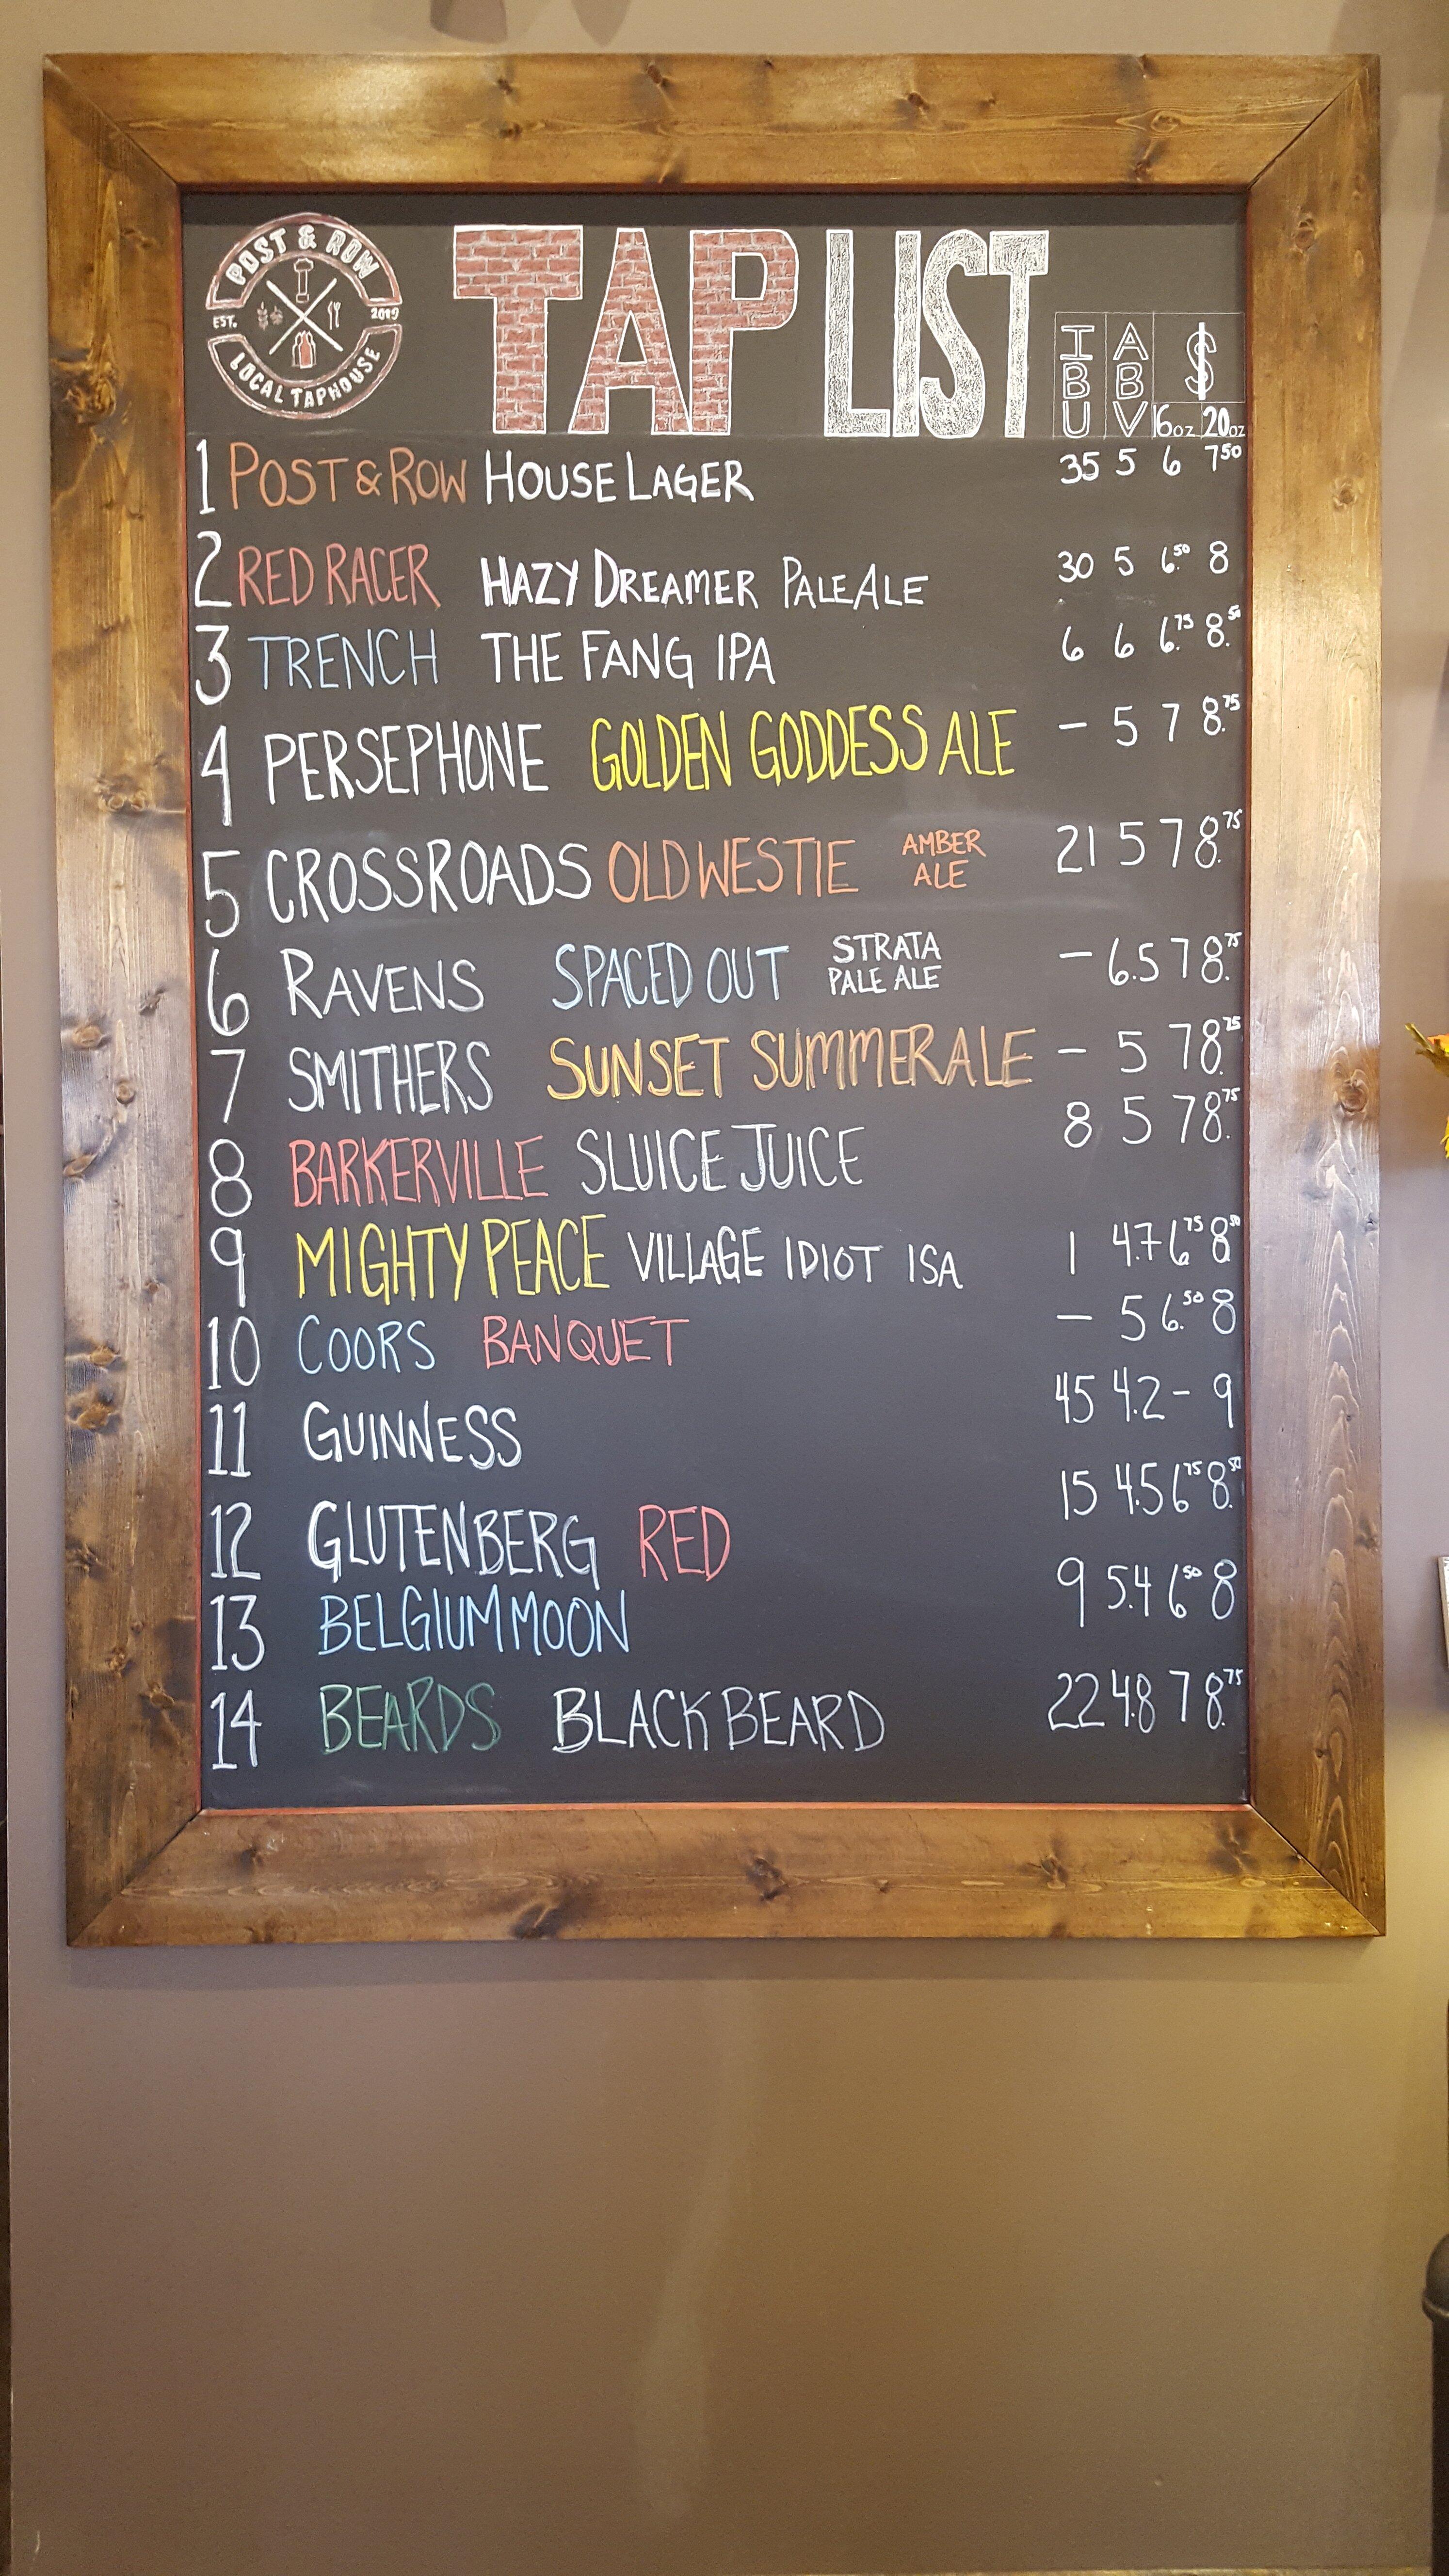 POST & ROW
EST. 2019
LOCAL TAPHOUSE
TAP LIST
IBU ABV $
6oz 20oz
1 POST & ROW HOUSE LAGER 35 5 6 7.50
2 RED RACER HAZY DREAMER PALE ALE 30 5 6.50 8
3 TRENCH THE FANG IPA 6 6 6.75 8.50
4 PERSEPHONE GOLDEN GODDESS ALE - 5 7 8.75
5 CROSSROADS OLD WESTIE AMBER ALE 21 5 7 8.75
6 RAVENS SPACED OUT STRATA PALE ALE - 6.5 7 8.75
7 SMITHERS SUNSET SUMMER ALE - 5 7 8.75
8 BARKERVILLE SLUICE JUICE 8 5 7 8.75
9 MIGHTY PEACE VILLAGE IDIOT ISA 1 4.7 6.75 8.50
10 COORS BANQUET - 5 6.50 8
11 GUINNESS 45 4.2 - 9
12 GLUTENBERG RED 15 4.5 6.75 8.50
13 BELGIUM MOON 9 5.4 6.50 8
14 BEARDS BLACK BEARD 22 4.8 7 8.75